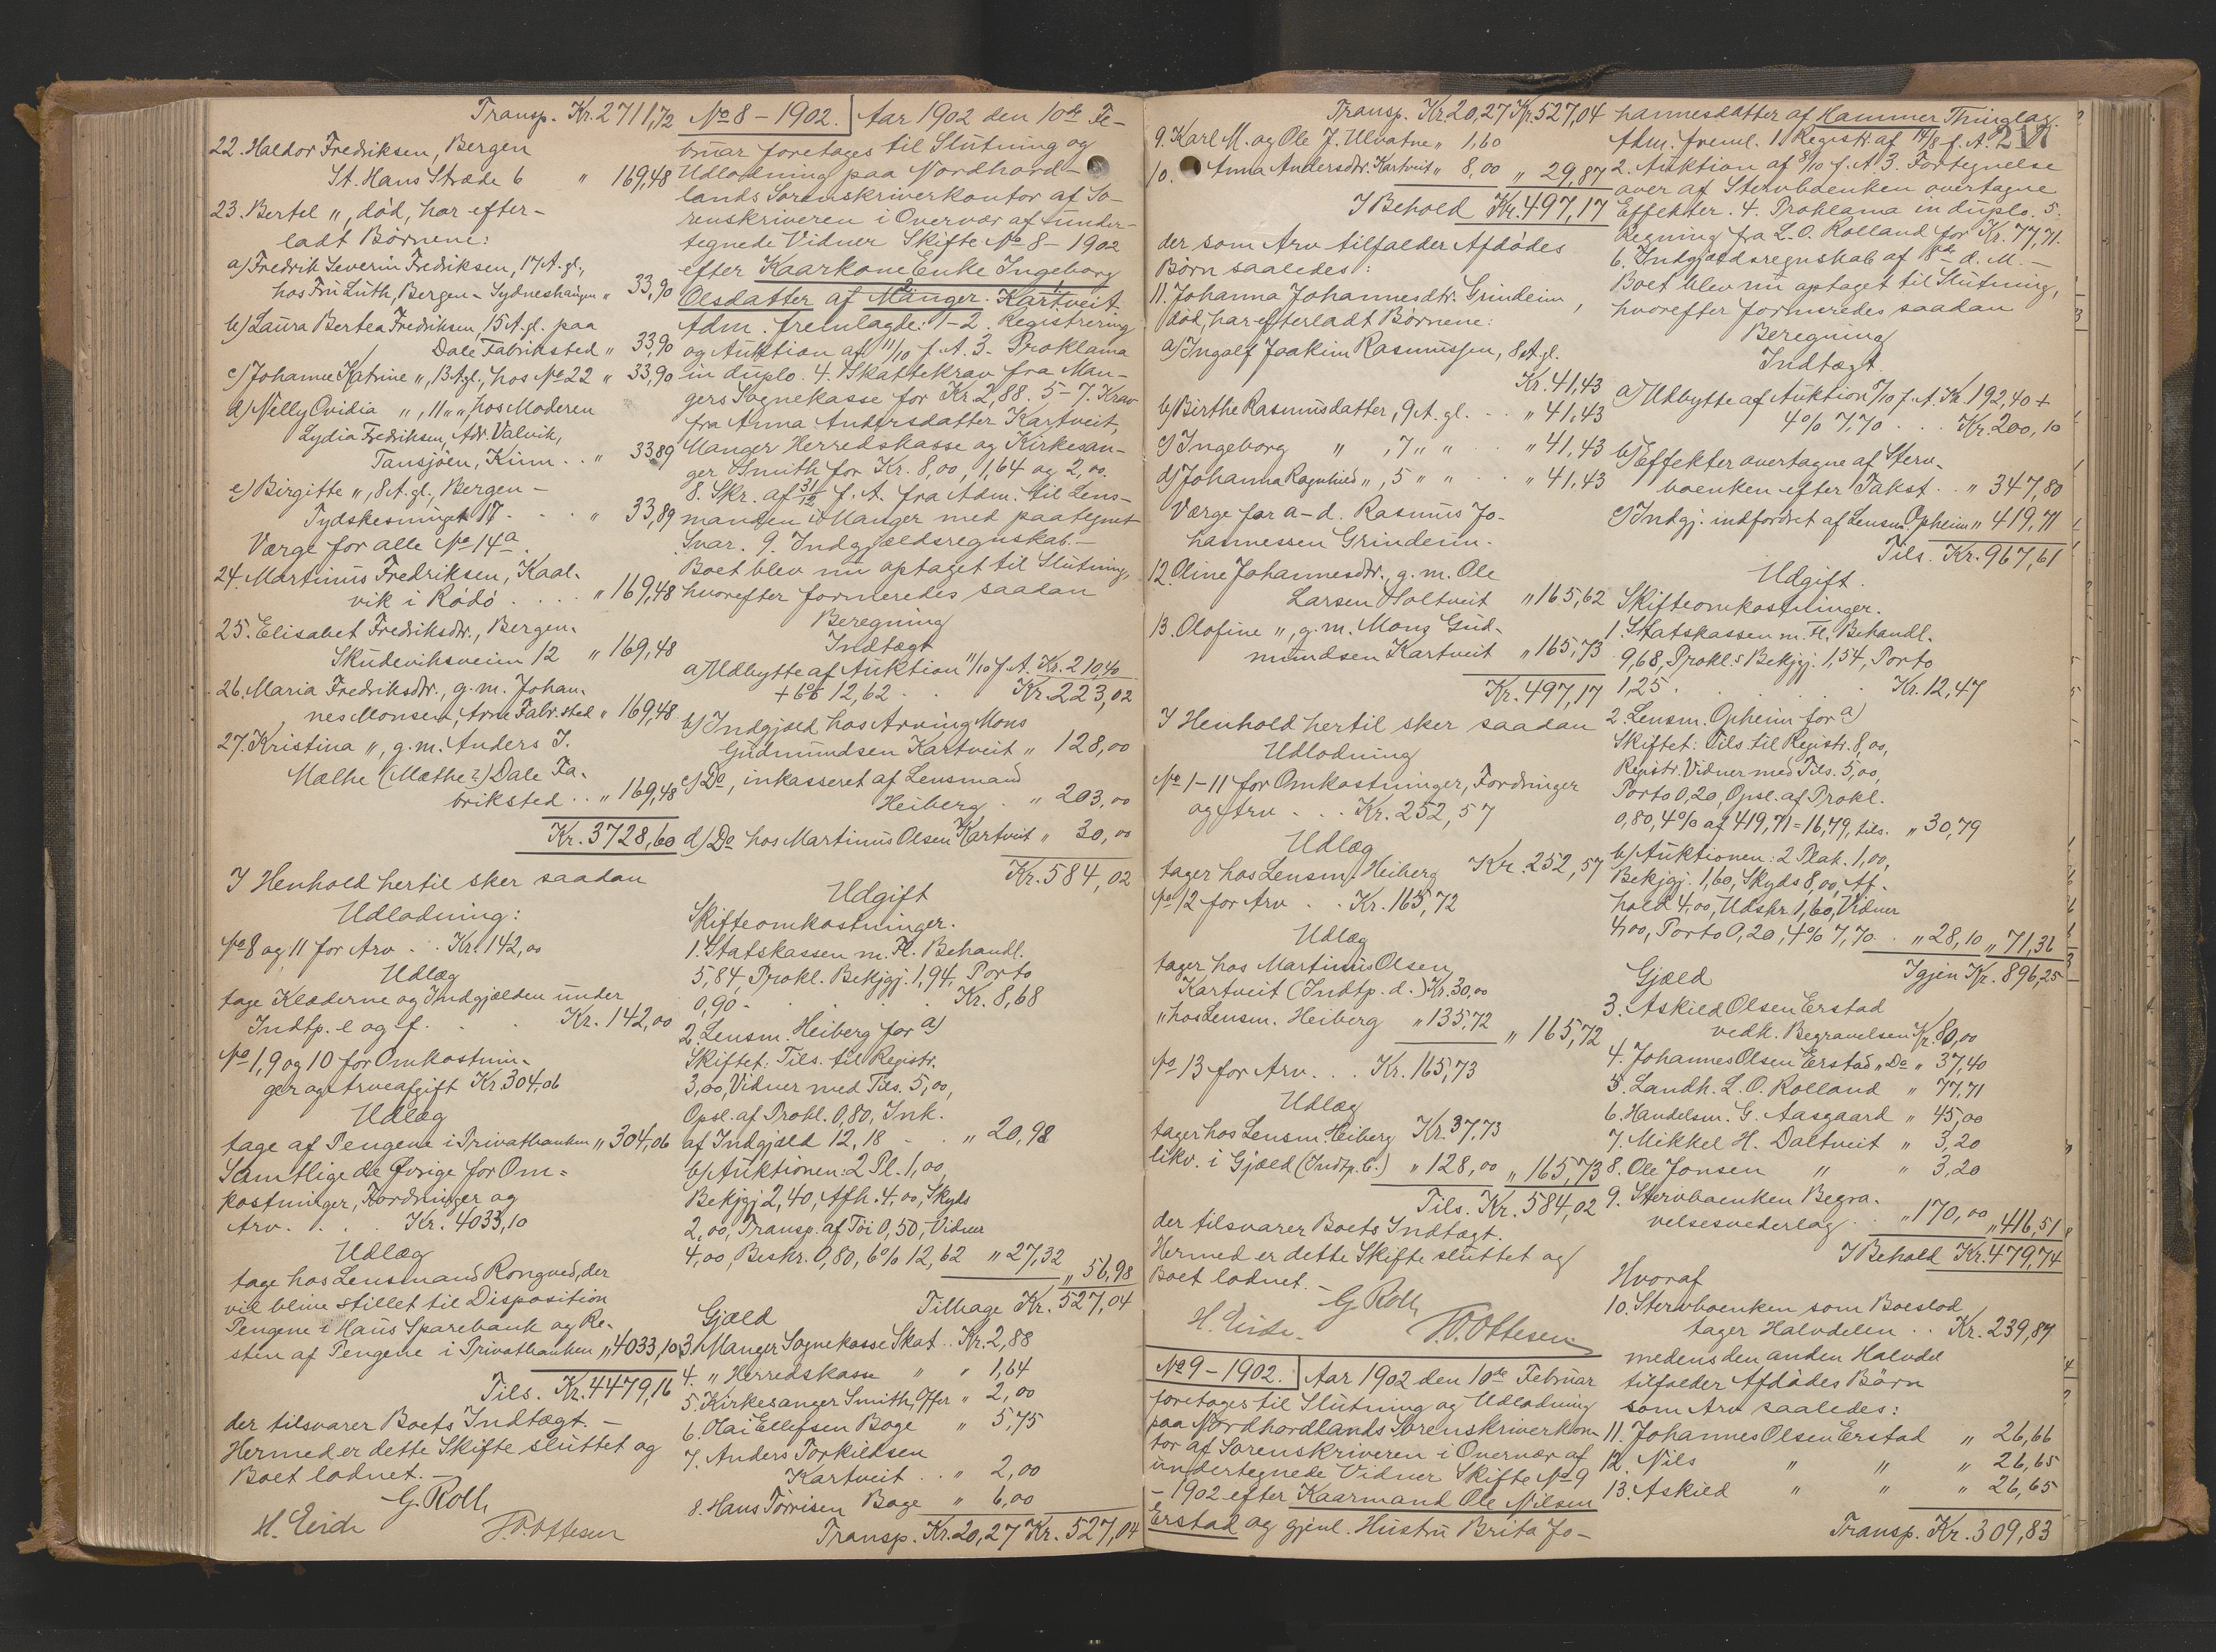 Transp. Kr. 2711,72
22. Haldor Fredriksen, Bergen
St. Hans Stræde 6 " 169,48
23. Bertel ", död, har efter-
ladt Börnene:
a) Fredrik Severin Fredriksen, 17 A. gl.,
hos Fru Luth, Bergen - Sydneshaugen " 33,90
b) Laura Bertea Fredriksen, 15 A. gl. paa
Dale Fabriksted " 33,90
c) Johanne Katrine ", 13 A gl., hos No 22 " 33,90
d) Nelly Ovidia ", 11 " " hos Moderen
Lydia Fredriksen, Adr. Valvik,
Tansjöen, Kinn . . " 33,89
e) Birgitte ", 8 A. gl., Bergen -
Tydskesmuget 17 . . . " 33,89
Værge for alle No 14a.
24. Martinus Fredriksen, Kaal-
vik i Rödö . . . . " 169,48
25. Elisabet Fredriksdtr., Bergen-
Skudeviksveien 12 " 169,48
26. Maria Fredriksdtr., g. m. Johan-
nes Monsen, Arne Fabr.sted " 169,48
27. Kristina ", g. m. Anders J.
Mælhe (Mæthe?) Dale Fa-
briksted . . " 169,48
Kr. 3728,60
I Henhold hertil sker saadan
Udlodning:
No 8 og 11 for Arv . . Kr. 142,00
Udlæg
tage Klæderne og Indgjælden under
Indtp. e og f. . . Kr. 142,00
No 1, 9 og 10 for Omkostnin-
ger og Arveafgift Kr 304,06
Udlæg
tage af Pengene i Privatbanken " 304,06
Samtlige de Øvrige for Om-
kostninger, Fordringer og
Arv. . . . Kr. 4033,10
Udlæg
tage hos Lensmand Rongved, der
vil blive stillet til Disposition
Pengene i Haus Sparebank og Re-
sten af Pengene i Privatbanken " 4033,10
Tils. Kr. 4479,16
der tilsvarer Boets Indtægt. -
Hermed er dette Skifte sluttet og
Boet lodnet. -
G. Roll
H. Eide
T. Ottesen
No 8 - 1902. Aar 1902 den 10de Fe-
bruar foretages til Slutning og
Udlodning paa Nordhord-
lands Sorenskriverkontor af So-
renskriveren i Overvær af under-
tegnede Vidner Skifte No 8 - 1902
efter Kaarkone Enke Ingeborg
Olsdatter af Manger. Kartveit.
Adm. fremlagde: 1-2. Registrering
og Auktion af 11/10 f. A. 3. Proklama
in duplo. 4. Skattekrav fra Man-
gers Sognekasse for Kr. 2,88. 5-7. Krav
fra Anna Andersdatter Kartveit,
Manger Herredskasse og Kirkesan-
ger Smith for Kr. 8,00, 1,64 og 2,00.
8. Skr. af 31/12 f. A. fra Adm. til Lens-
manden i Manger med paategnet
Svar. 9. Indgjældsregnskab. -
Boet blev nu optaget til Slutning,
hvorefter formeredes saadan
Beregning
Indtægt
a) Udbytte af Auktion 11/10 f. A. Kr. 210,40
+ 6% 12,62 . . Kr. 223,02
b) Indgjæld hos Arving Mons
Gudmundsen Kartveit " 128,00
c) Do, inkasseret af Lensmand
Heiberg . " 203,00
d) Do hos Martinus Olsen Kartveit " 30,00
Kr. 584,02
Udgift
Skifteomkostninger.
1. Statskassen m. Fl. Behandl.
5,84, Prokl. Bekjgj. 1,94, Porto
0,90 . . . . . Kr. 8,68
2. Lensm. Heiberg for a)
Skiftet: Tils. til Registr.
3,00, Vidner med Tils. 5,00,
Opsl. af Prokl. 0,80, Ink.
af Indgjæld 12,18 . . " 20,98
b) Auktionen: 2 Pl. 1,00,
Bekjgj 2,40, Afh. 4,00, Skyds
2,00, Transp. af Töi 0,50, Vidner
4,00, Beskr. 0,80, 6% 12,62 " 27,32 " 56,98
Tilbage Kr. 527,04
Gjæld
3. Manger Sognekasse Skat . . Kr. 2,88
4. " Herredskasse " " 1,64
5. Kirkesanger Smith, Offer " 2,00
6. Olai Ellefsen Boge " 5,75
7. Anders Torkildsen
Kartveit . . " 2,00
8. Hans Törrisen Boge " 6,00
Transp. Kr. 20,27 Kr. 527,04
Transp. Kr. 20,27 Kr. 527,04
9. Karl M. og Ole J. Ulvatne " 1,60
10. Anna Andersdtr. Kartveit " 8,00 " 29,87
I Behold Kr. 497,17
der som Arv tilfalder Afdödes
Börn saaledes:
11. Johanna Johannesdtr. Grindeim,
död, har efterladt Börnene:
a) Ingolf Joakim Rasmussen, 8 A. gl.
Kr. 41,43
b) Birthe Rasmusdatter, 9 A. gl. . . " 41,43
c) Ingeborg " , 7 " " . . " 41,43
d) Johanna Ragnhild ", 5 " " . . " 41,43
Værge for a-d. Rasmus Jo-
hannessen Grindeim.
12. Oline Johannesdtr., g. m. Ole
Larsen Holtveit " 165,62
13. Olofine ", g. m. Mons Gud-
mundsen Kartveit " 165,73
Kr. 497,17
I Henhold hertil sker saadan
Udlodning
No 1-11 for Omkostninger, Fordringer
og Arv . . . Kr. 252,57
Udlæg
tager hos Lensm. Heiberg Kr. 252,57
No 12 for Arv . . Kr. 165,72
Udlæg
tager hos Martinus Olsen
Kartveit (Indtp. d.) Kr. 30,00
" hos Lensm. Heiberg " 135,72 " 165,72
No 13 for Arv. . . Kr. 165,73
Udlæg
tager hos Lensm. Heiberg Kr. 37,73
likv. i Gjæld (Indtp. b.) " 128,00 " 165,73
Tils. Kr. 584,02
der tilsvarer Boets Indtægt.
Hermed er dette Skifte sluttet og
Boet lodnet. -
G. Roll
H. Eide.
T. Ottesen
No 9 - 1902. Aar 1902 den 10de Februar
foretages til Slutning og Udlodning
paa Nordhordlands Sorenskriverkon-
tor af Sorenskriveren i Overvær af
undertegnede Vidner Skifte No 9
- 1902 efter Kaarmand Ole Nilsen
Erstad og gjenl. Hustru Brita Jo-
hannesdatter af Hammer Thinglag.
Adm. freml. 1 Registr. af 14/8 f. A.
2. Auktion af 8/10 f. A. 3. Fortegnelse
over af Stervboenken overtagne
Effekter. 4. Proklama in duplo. 5.
Regning fra L. O. Rolland for Kr. 77,71.
6. Indgjældsregnskab af 8de d. M. -
Boet blev nu optaget til Slutning,
hvorefter formeredes saadan
Beregning
Indtægt.
a) Udbytte af Auktion 7/10 f. A. Kr. 192,40 +
4% 7,70 . . . Kr. 200,10
b) Effekter overtagne af Sterv-
boenken efter Takst . . " 347,80
c) Indgj. indfordret af Lensm. Opheim " 419,71
Tils. Kr. 967,61
Udgift.
Skifteomkostninger.
1. Statskassen m. Fl. Behandl.
9,68, Prokl.s Bekjgj. 1,54, Porto
1,25 . . . . . Kr. 12,47
2. Lensm. Opheim for a)
Skiftet: Tils. til Registr. 8,00,
Registr. Vidner med Tils. 5,00,
Porto 0,20, Opsl. af Prokl.
0,80, 4% af 419,71 = 16,79, tils. " 30,79
b) Auktionen: 2 Plak. 1,00,
Bekjgj. 1,60, Skyds 8,00, Af-
hold 4,00, Udskr. 1,60, Vidner
4,00, Porto 0,20, 4% 7,70 . . " 28,10 " 71,36
Igjen Kr. 896,25
Gjæld
3. Askild Olsen Erstad
vedk. Begravelsen Kr. 80,00
4. Johannes Olsen Erstad " Do " 37,40
5. Landh. L. O. Rolland " 77,71
6. Handelsm. G. Aasgaard " 45,00
7. Mikkel H. Daltveit " 3,20
8. Ole Jonsen " " 3,20
9. Stervboenken Begra-
velsesvederlag . . " 170,00 " 416,51
I Behold Kr. 479,74
Hvoraf
10. Stervboenken som Boeslod
tager Halvdelen . . Kr. 239,87
medens den anden Halvdel
tilfalder Afdödes Börn
som Arv saaledes:
11. Johannes Olsen Erstad " 26,66
12. Nils " " " 26,65
13. Askild " " " 26,65
Transp. Kr. 309,83